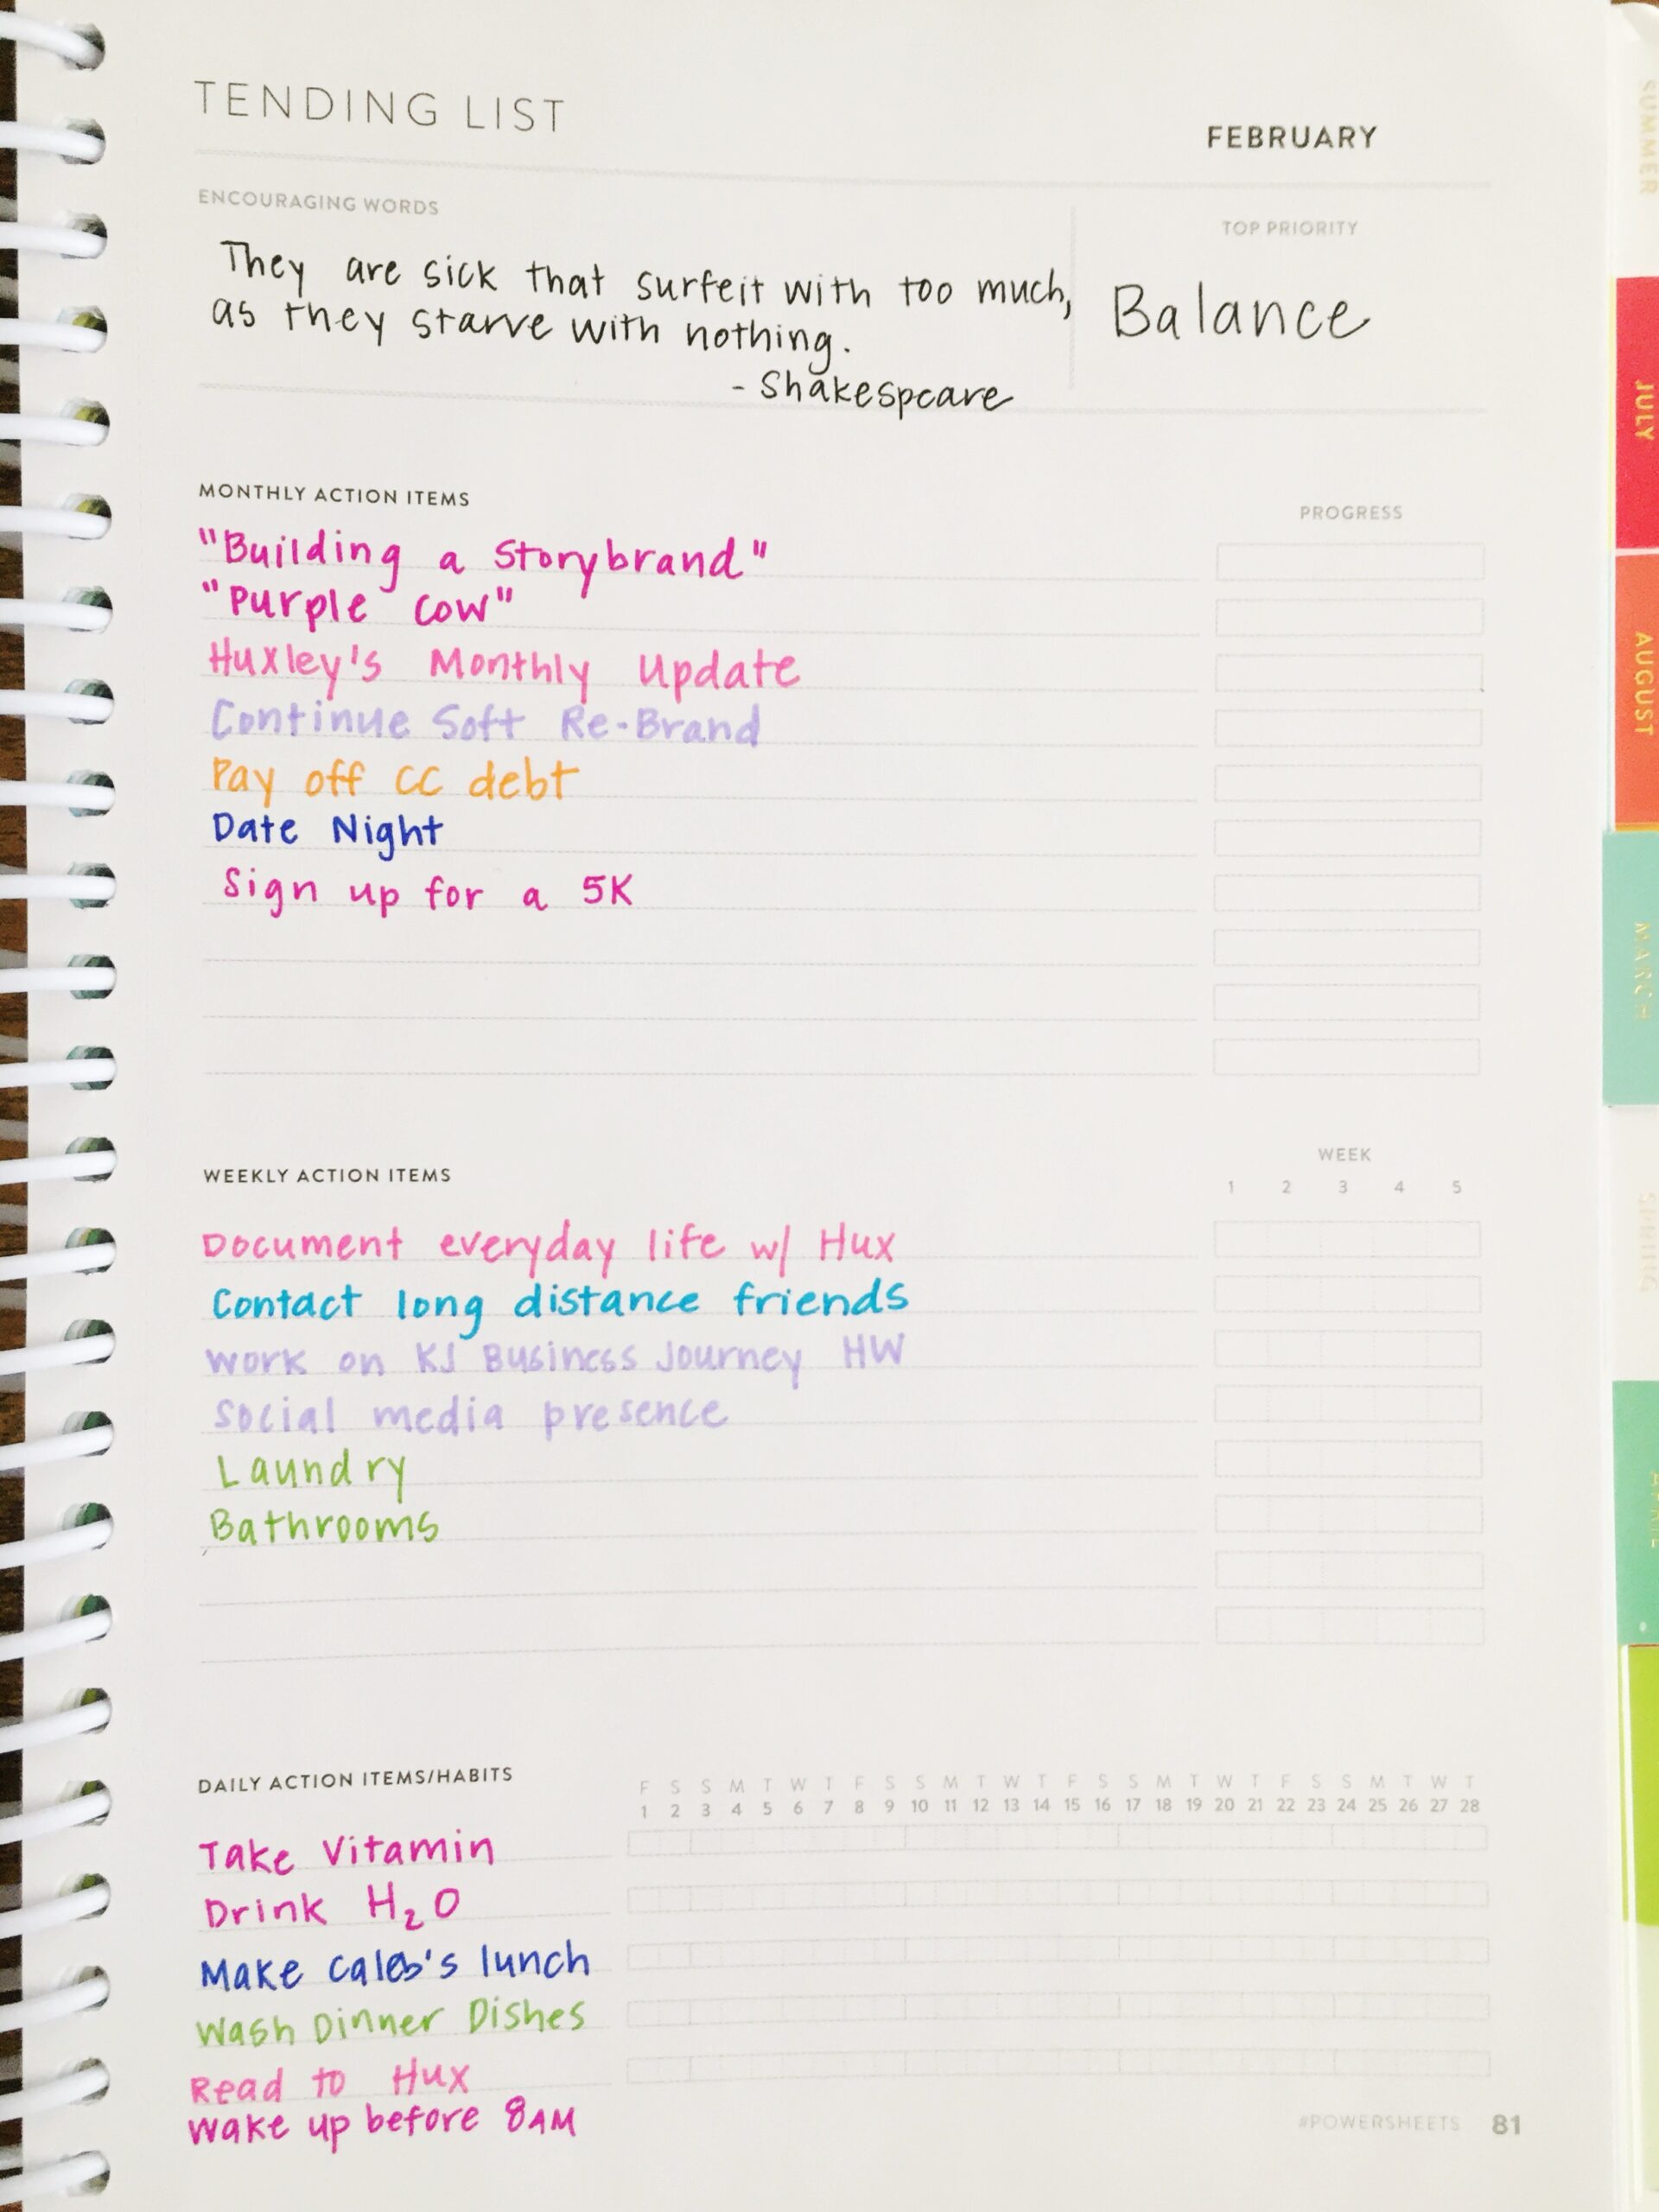 TENDING LIST
FEBRUARY
ENCOURAGING WORDS
They are sick that surfeit with too much,
as they starve with nothing.
- Shakespeare
TOP PRIORITY
Balance
MONTHLY ACTION ITEMS
PROGRESS
"Building a Storybrand"
"Purple Cow"
Huxley's Monthly Update
Continue Soft Re-Brand
Pay off CC debt
Date Night
Sign up for a 5K
WEEKLY ACTION ITEMS
WEEK
1 2 3 4 5
Document everyday life w/ Hux
Contact long distance friends
Work on KJ Business Journey HW
Social media presence
Laundry
Bathrooms
DAILY ACTION ITEMS/HABITS
F S S M T W T F S S M T W T F S S M T W T F S S M T W T
1 2 3 4 5 6 7 8 9 10 11 12 13 14 15 16 17 18 19 20 21 22 23 24 25 26 27 28
Take Vitamin
Drink H₂O
Make Caleb's lunch
Wash Dinner Dishes
Read to Hux
Wake up before 8AM
#POWERSHEETS 81
SUMMER
JULY
AUGUST
MARCH
SPRING
APRIL